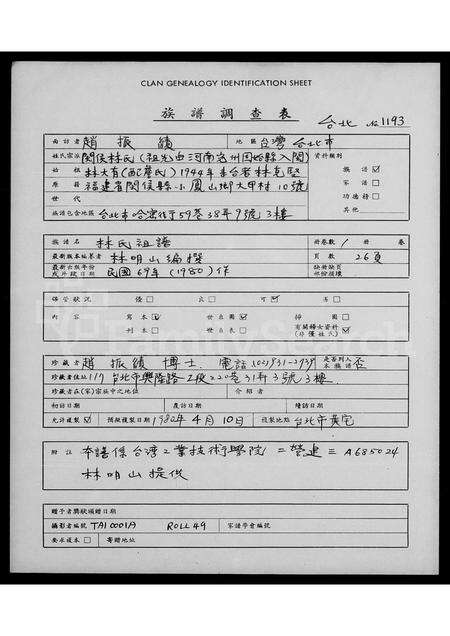 CLAN GENEALOGY IDENTIFICATION SHEET
族譜調查表
台北 No 1193
面訪者 趙振績 地區 台灣台北市
姓氏宗派 閩侯林氏(祖先由河南光州固始縣入閩) 資料類別
始祖 林大有 1944年 者林克堅 族譜 ☑
原籍 福建省閩侯縣小鳳山鄉大甲村10號 家譜 □
世代 功德榜 □
族譜包含地區 台北市哈密街59巷38弄9號3樓 其他
族譜名 林氏祖譜 冊卷數 1 冊 卷
最新版本編纂者 林明山編撰 頁數 26頁
最新出版年份或抄錄日期 民國69年(1980)作 缺冊缺頁或份損壞
保管狀況 優 □ 良 □ 可 ☑ 差 □
內容 寫本 ☑ 世自團 ☑ 掃圖 □
刊本 □ 世自表 □ 有關婦女資料 ☑ (非僅姓氏)
珍藏者 趙振績博士 電話(02)931-2939 是否列入本族譜 否
珍藏者住址 117台北市興隆路2段220巷31弄3號3樓
珍藏者在(宗)宗族中之地位 介紹者
初訪日期 復訪日期 續訪日期
允許複製 ☑ 預擬複製日期 1980年4月10日 複製地點 台北市黃宅
附註 本譜係台灣工業技術學院二營建三A685024
林明山提供
贈予者獎狀頒贈日期
攝影者編號 TA10001A ROLL 49 家譜學會編號
要求複本 □ 寄贈地址
FamilySearch